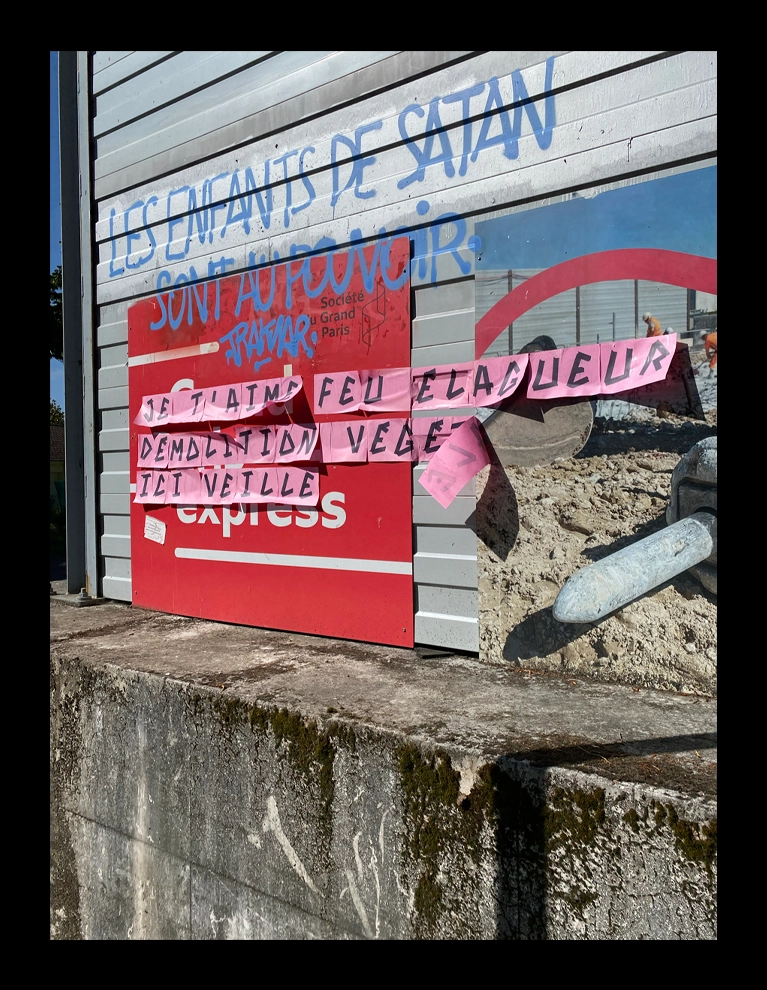 LES ENFANTS DE SATAN
SONT AU POUVOIR.
Société
du Grand
Paris
JE T'AIME FEU ÉLAGUEUR
DÉMOLITION VÉGÉ
ICI VEILLE
express